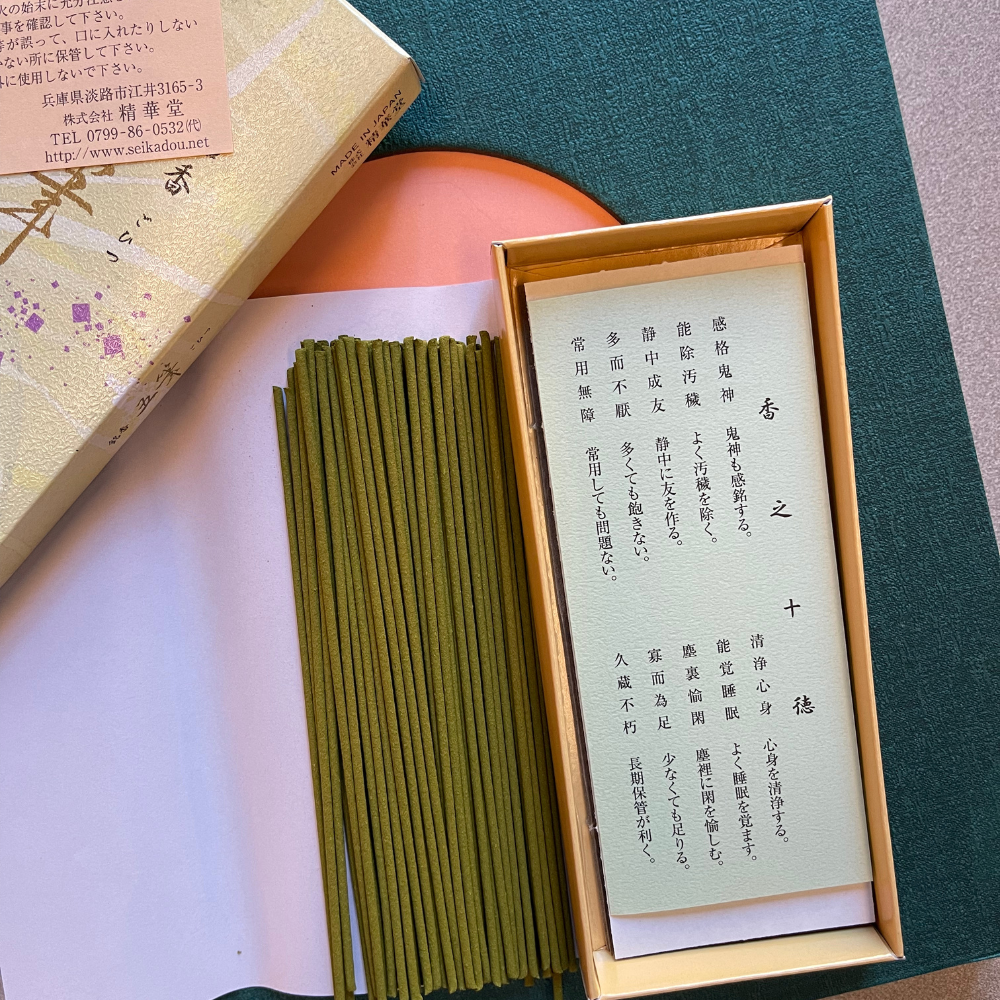 火の始末に充分注意
事を確認して下さい。
が誤って、口に入れたりしない
ない所に保管して下さい。
に使用しないで下さい。
兵庫県淡路市江井3165-3
株式会社 精華堂
TEL 0799-86-0532㈹
http://www.seikadou.net
MADE IN JAPAN
精華堂
香
香之十徳
感格鬼神 鬼神も感銘する。
能除汚穢 よく汚穢を除く。
静中成友 静中に友を作る。
多而不厭 多くても飽きない。
常用無障 常用しても問題ない。
清浄心身 心身を清浄する。
能覚睡眠 よく睡眠を覚ます。
塵裏愉閑 塵裡に閑を愉しむ。
寡而為足 少なくても足りる。
久蔵不朽 長期保管が利く。